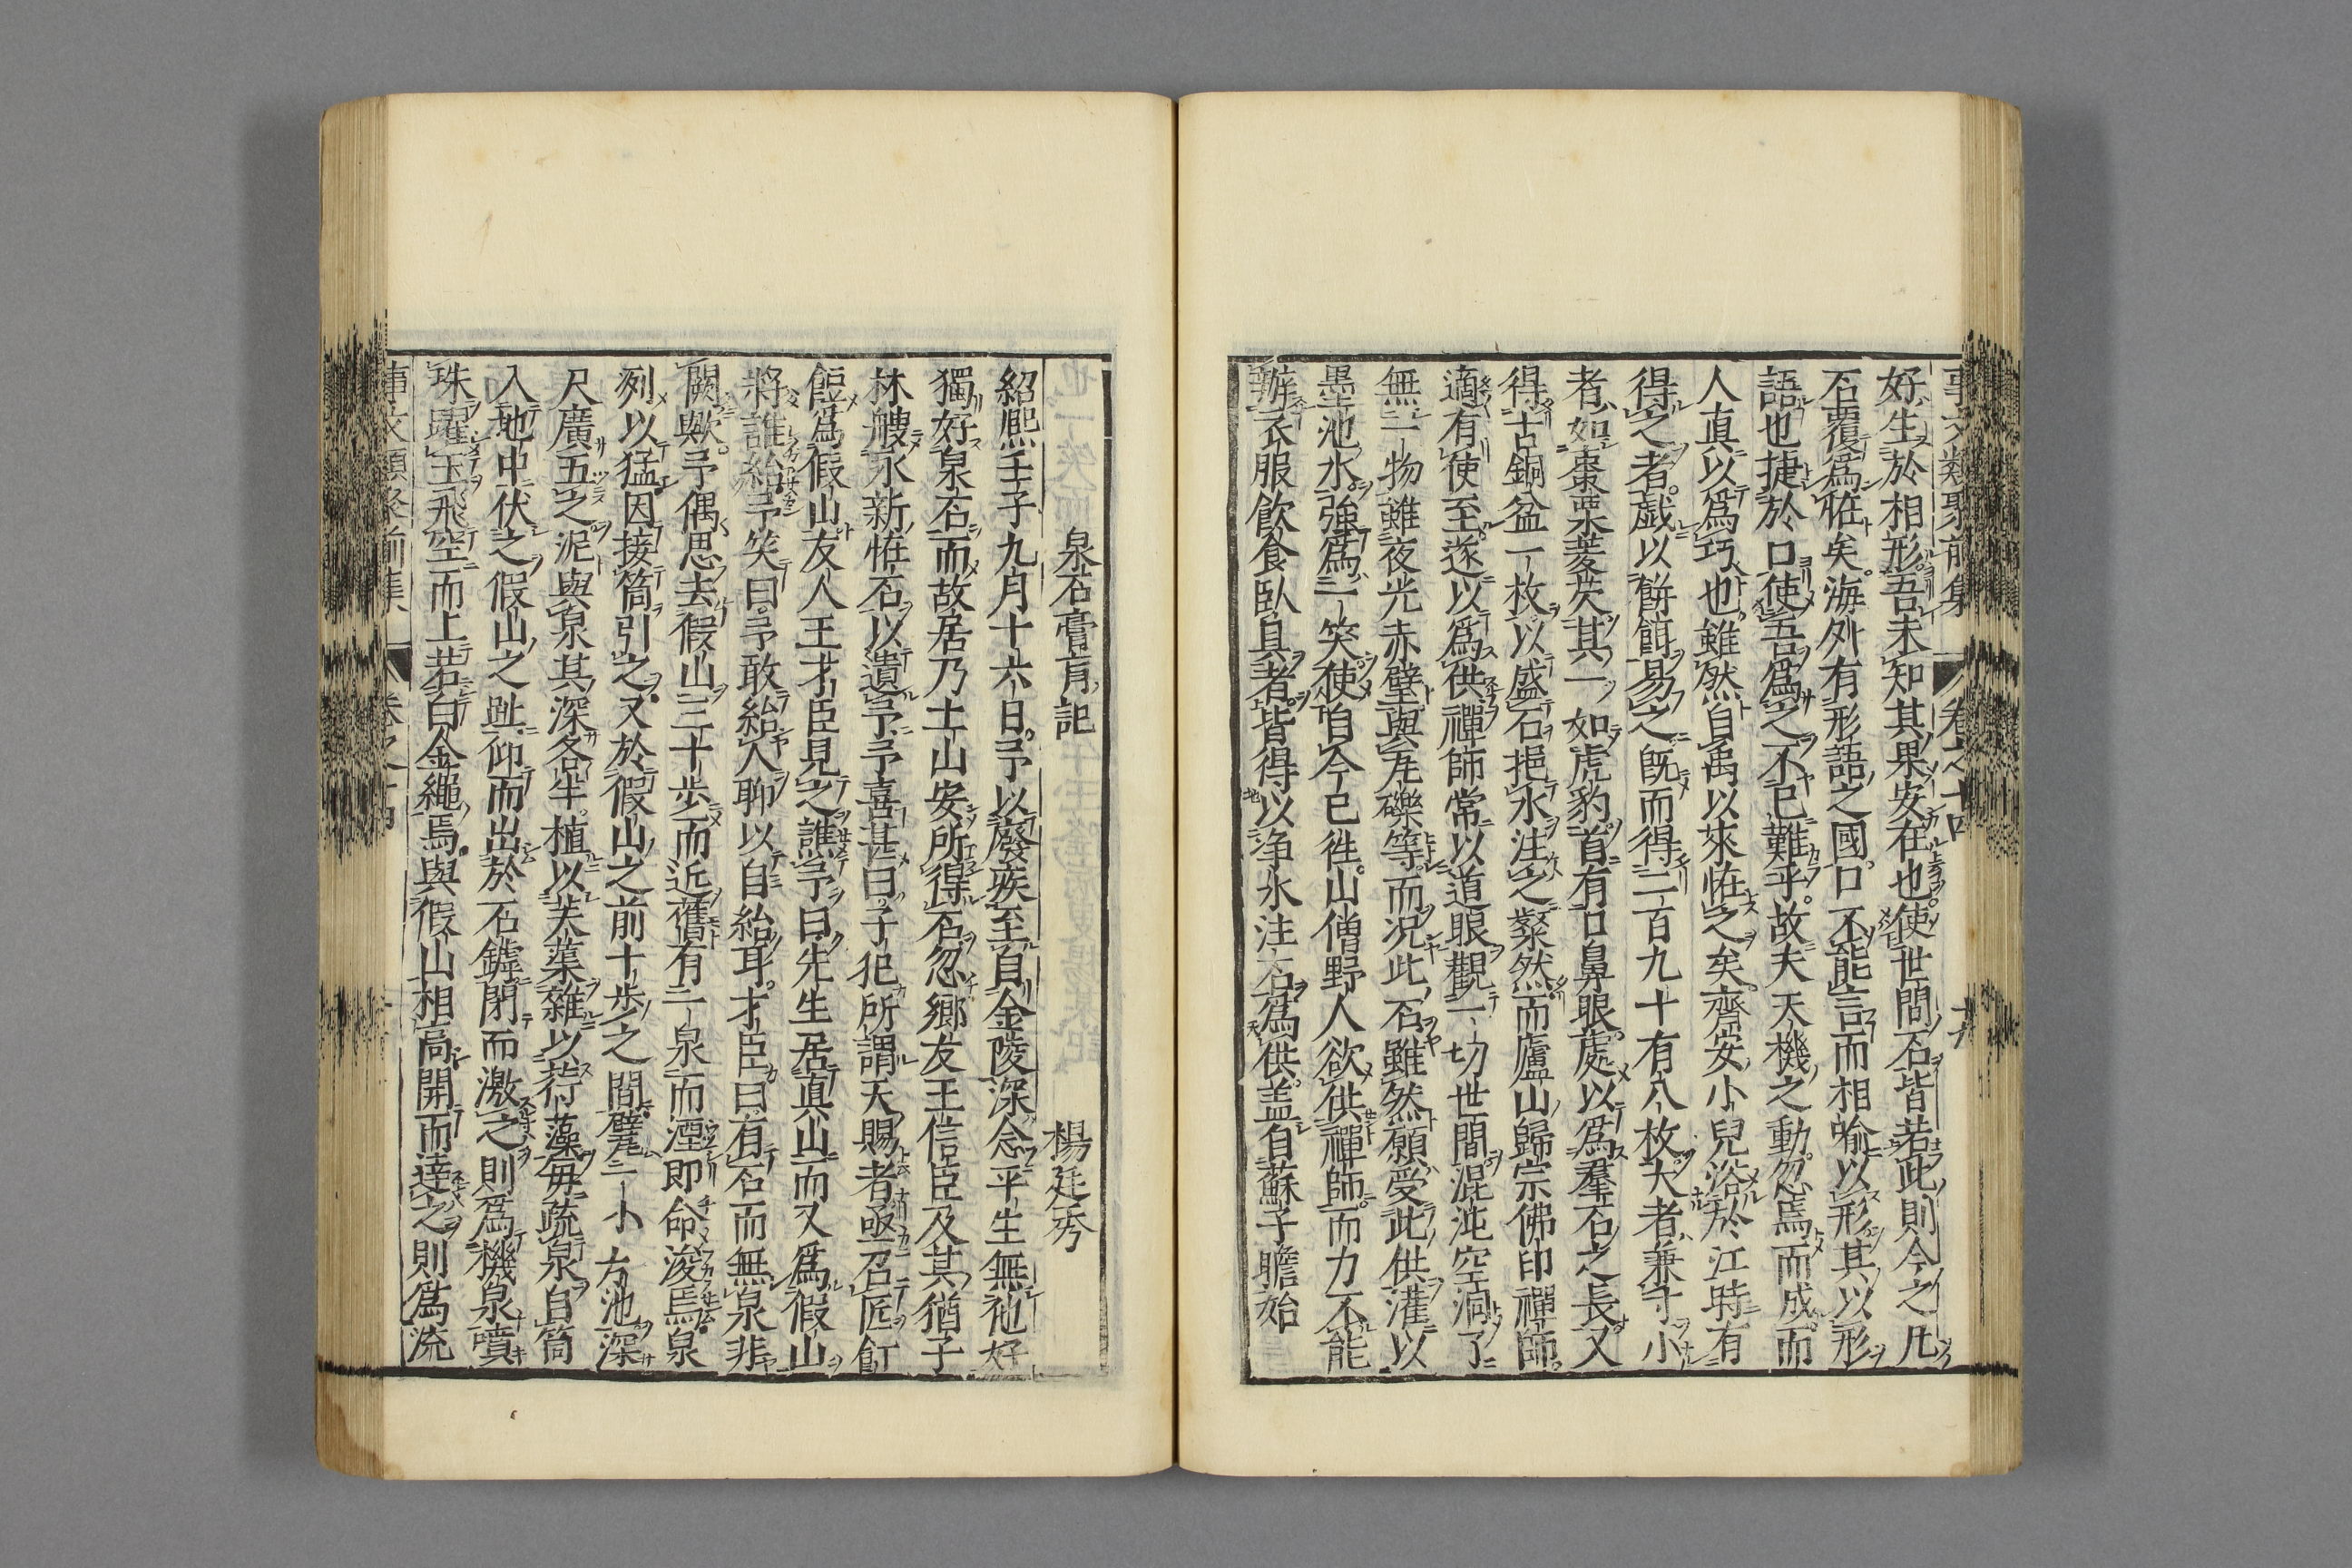 事文類聚前集 卷之十四
好生於相形吾未知其果安在也使世間石皆若此則今之凡
石覆爲恠矣海外有形語之國口不能言而相喻以形其以形
語也捷於口使吾爲之不已難乎故夫天機之動忽焉而成而
人真以爲巧也雖然自禹以來恠之矣齊安小兒浴於江時有
得之者戲以餅餌易之既而得二百九十有八枚大者兼寸小
者如棗栗菱芡其一如虎豹首有口鼻眼處以爲羣石之長又
得古銅盆一枚以盛石挹水注之粲然而廬山歸宗佛印禪師
適有使至遂以爲供禪師常以道眼觀一切世間混沌空洞了
無一物雖夜光赤璧與瓦礫等而况此石雖然願受此供灌以
墨池水強爲一笑使自今已徃山僧野人欲供禪師而力不能
辦衣服飲食臥具者皆得以浄水注石爲供盖自蘇子瞻始
泉石膏肓記 楊廷秀
紹熙壬子九月十六日予以廢疾至自金陵深念平生無他好
獨好泉石而故居乃土山安所得石忽鄉友王信臣及其猶子
林艘永新恠石以遺予予喜甚曰子犯所謂天賜者亟召匠飣
餖爲假山友人王才臣見之譙予曰先生居真山而又爲假山
將誰紿予笑曰予敢紿人聊以自紿耳才臣曰有石而無泉非
闕歟予偶思去假山三十步而近舊有一泉而湮即命浚焉泉
冽以猛因接筒引之又於假山之前十步之間甃二小方池深
尺廣五之泥與泉其深各半植以芙蕖雜以荇藻毎疏泉自筒
入地中伏之假山之趾仰而出於石罅閉而激之則爲機泉噴
珠躍玉飛空而上若白金繩焉與假山相高開而達之則爲流
事文類聚前集 卷之十四